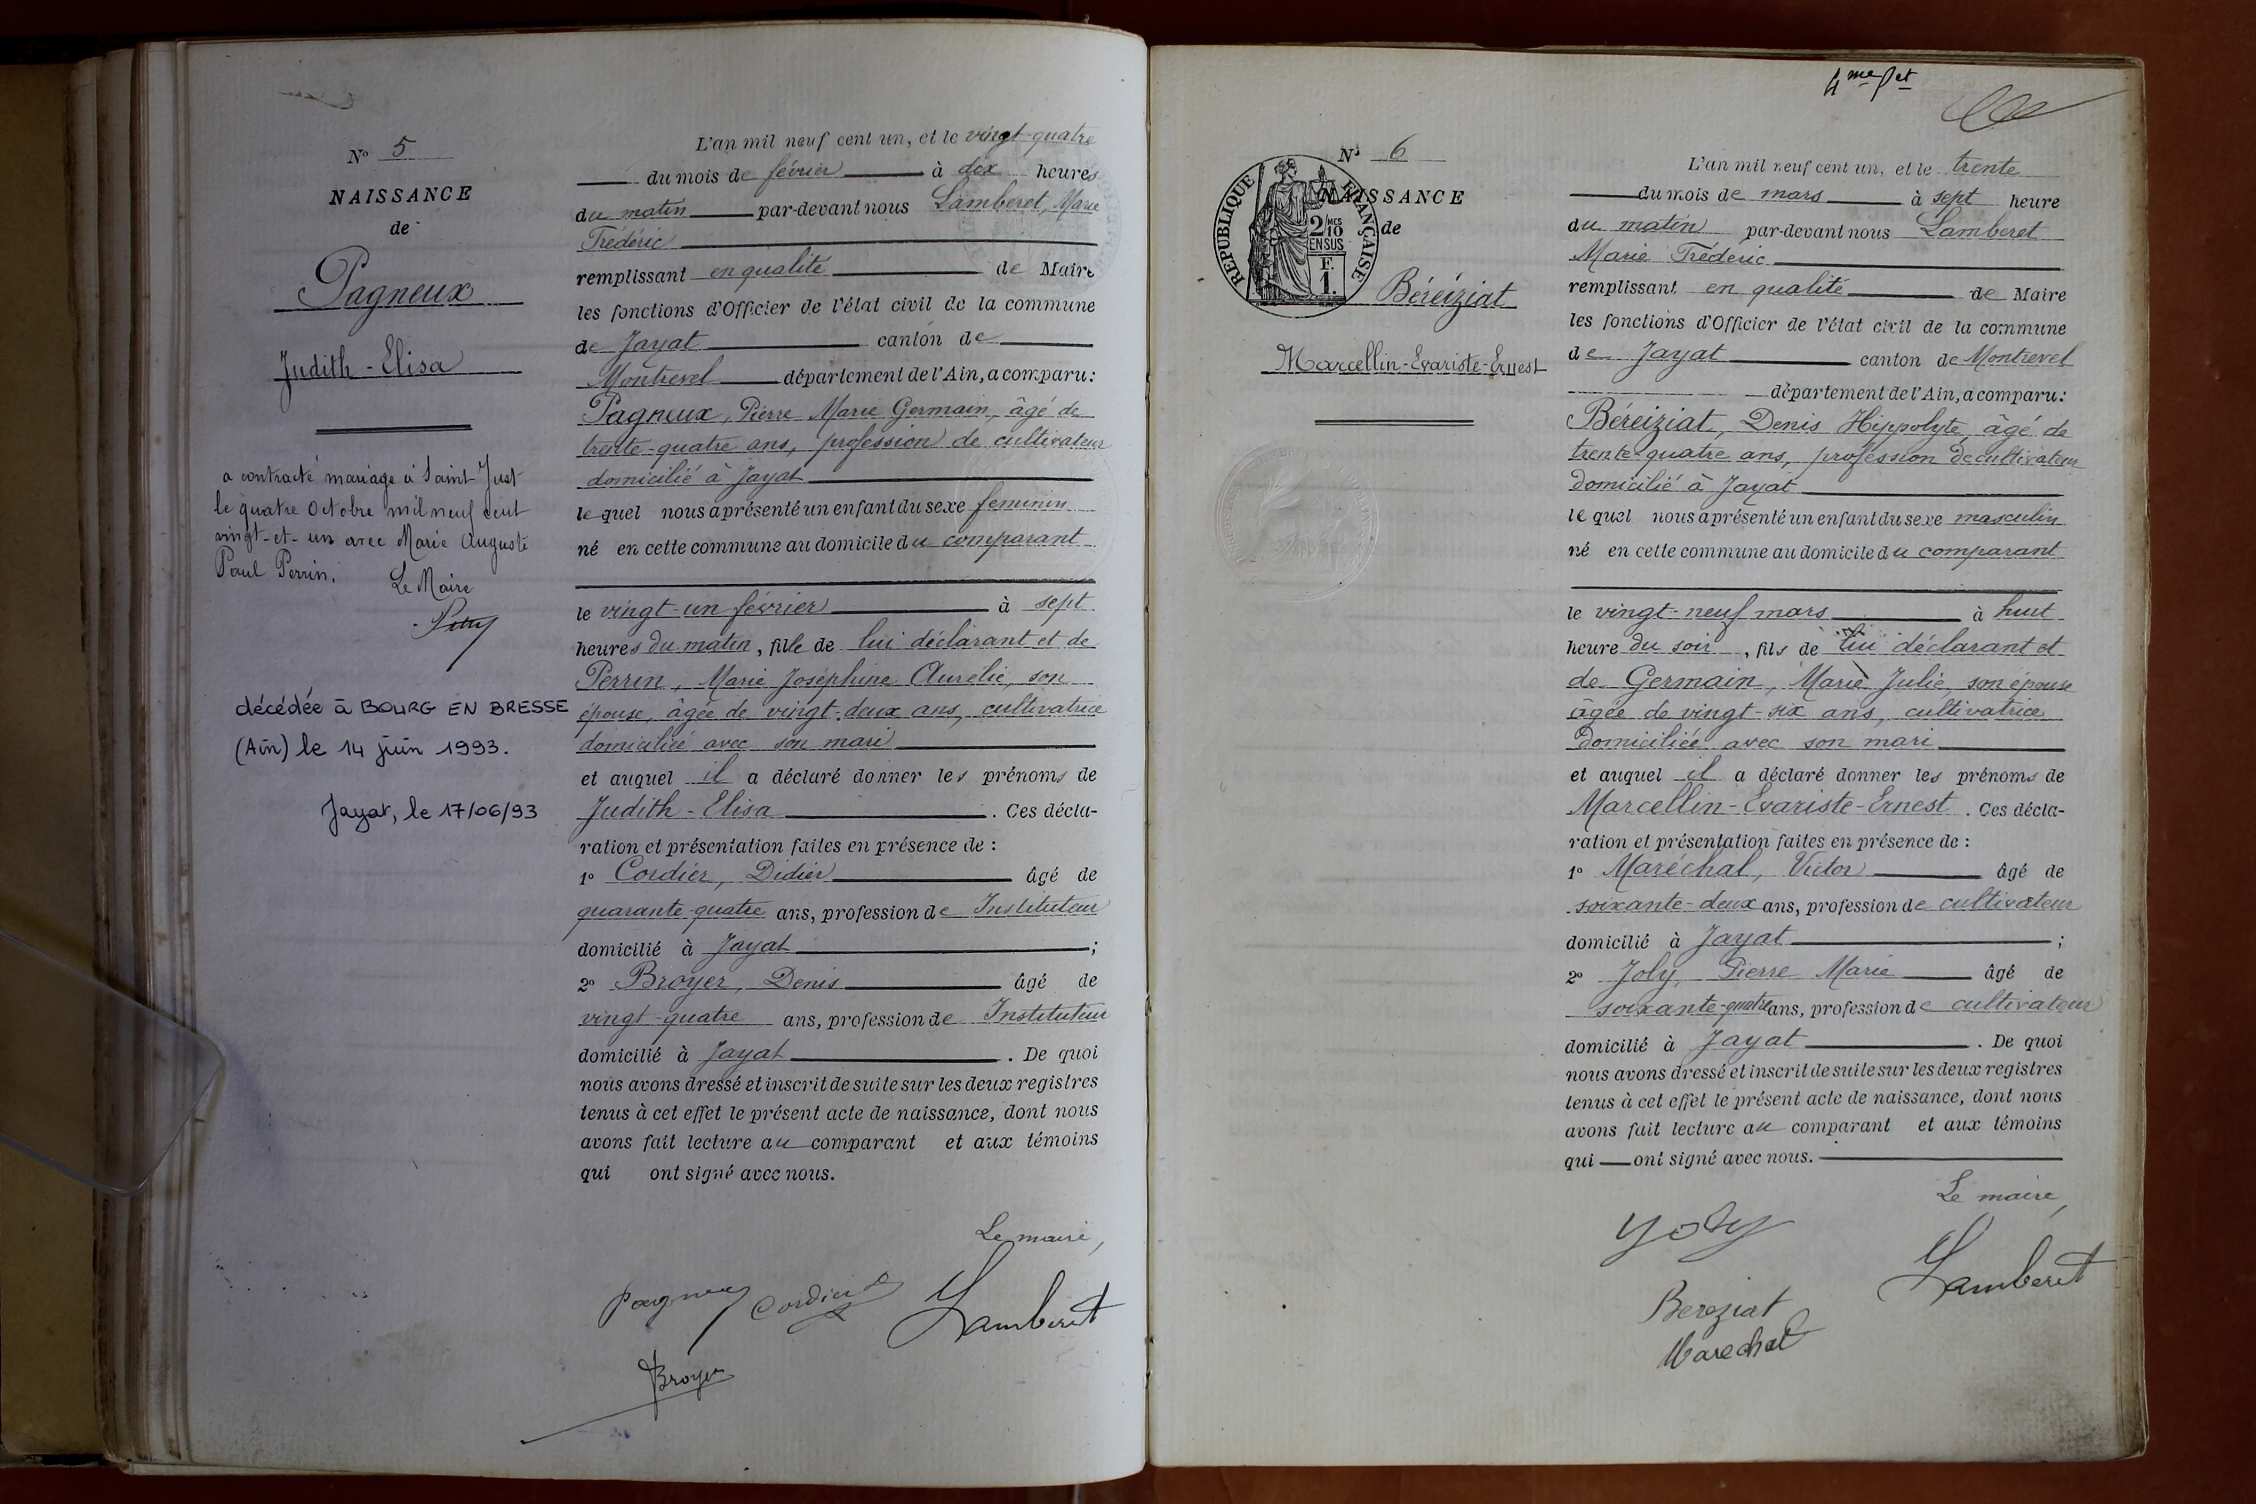 N° 5
NAISSANCE
de
Pagneux
Judith-Elisa
a contracté mariage à Saint Just
le quatre Octobre mil neuf cent
vingt-et-un avec Marie Auguste
Paul Perrin.
Le Maire
décédée à BOURG EN BRESSE
(Ain) le 14 juin 1993.
Jayat, le 17/06/93
L'an mil neuf cent un, et le vingt-quatre
du mois de février à dix heures
du matin par-devant nous Lamberet, Marie
Frédéric
remplissant en qualité de Maire
les fonctions d'Officier de l'état civil de la commune
de Jayat canton de
Montrevel département de l'Ain, a comparu:
Pagneux, Pierre Marie Germain, âgé de
trente-quatre ans, profession de cultivateur
domicilié à Jayat
le quel nous a présenté un enfant du sexe feminin
né en cette commune au domicile du comparant
le vingt-un février à sept
heures du matin, fille de lui déclarant et de
Perrin, Marie Joséphine Aurélie, son
épouse, âgée de vingt-deux ans, cultivatrice
domiciliée avec son mari
et auquel il a déclaré donner les prénoms de
Judith-Elisa. Ces décla-
ration et présentation faites en présence de :
1° Cordier, Didier âgé de
quarante-quatre ans, profession de Instituteur
domicilié à Jayat ;
2° Broyer, Denis âgé de
vingt-quatre ans, profession de Instituteur
domicilié à Jayat. De quoi
nous avons dressé et inscrit de suite sur les deux registres
tenus à cet effet le présent acte de naissance, dont nous
avons fait lecture au comparant et aux témoins
qui ont signé avec nous.
Le maire,
Pagneux Cordier Lamberet
Broyer
4me
N° 6
NAISSANCE
de
RÉPUBLIQUE FRANÇAISE
2 MES
10
EN SUS
F.
1.
Béreiziat
Marcellin-Evariste-Ernest
L'an mil neuf cent un, et le trente
du mois de mars à sept heure
du matin par-devant nous Lamberet
Marie Frédéric
remplissant en qualité de Maire
les fonctions d'Officier de l'état civil de la commune
de Jayat canton de Montrevel
département de l'Ain, a comparu:
Béreiziat, Denis Hippolyte, âgé de
trente-quatre ans, profession de cultivateur
domicilié à Jayat
le quel nous a présenté un enfant du sexe masculin
né en cette commune au domicile du comparant
le vingt-neuf mars à huit
heure du soir, fils de lui déclarant et
de Germain, Marie Julie, son épouse
âgée de vingt-six ans, cultivatrice
domiciliée avec son mari
et auquel il a déclaré donner les prénoms de
Marcellin-Evariste-Ernest. Ces décla-
ration et présentation faites en présence de :
1° Maréchal, Victor âgé de
soixante-deux ans, profession de cultivateur
domicilié à Jayat ;
2° Joly, Pierre Marie âgé de
soixante-quatre ans, profession de cultivateur
domicilié à Jayat. De quoi
nous avons dressé et inscrit de suite sur les deux registres
tenus à cet effet le présent acte de naissance, dont nous
avons fait lecture au comparant et aux témoins
qui ont signé avec nous.
Le maire,
Joly
Lamberet
Bereziat
Marechal